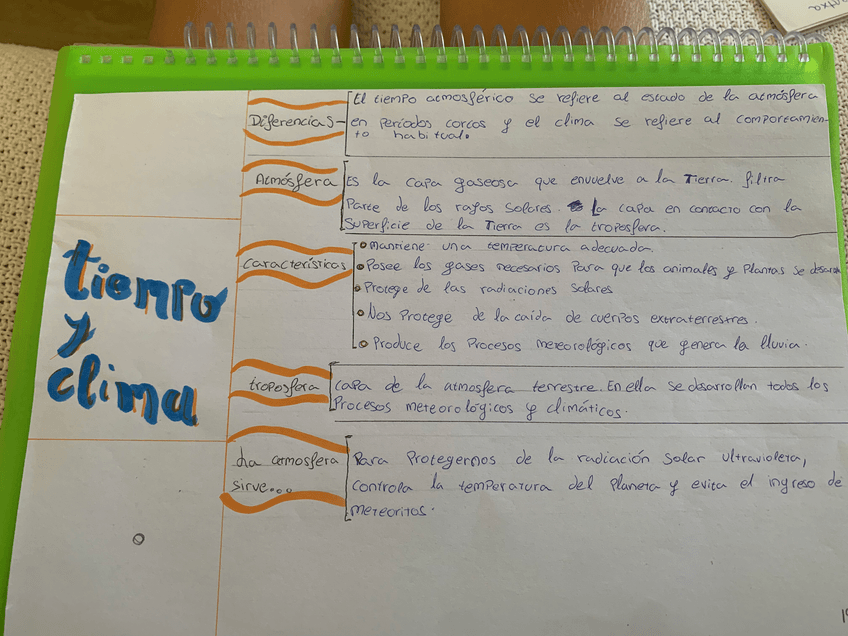 tiempo
y
clima
Diferencias
El tiempo atmosférico se refiere al estado de la atmósfera
en períodos cortos y el clima se refiere al comportamien-
to habitual.
Atmósfera
Es la capa gaseosa que envuelve a la Tierra. filtra
Parte de los rayos solares. La capa en contacto con la
superficie de la Tierra es la troposfera.
características
Mantiene una temperatura adecuada.
Posee los gases necesarios para que los animales y plantas se
Protege de las radiaciones solares
Nos protege de la caida de cuerpos extraterrestres.
Produce los procesos meteorológicos que genera la lluvia.
troposfera
capa de la atmosfera terrestre. En ella se desarrollan todos los
procesos meteorológicos y climáticos.
La atmosfera
sirve...
Para protegernos de la radiación solar ultravioleta,
controla la temperatura del planeta y evita el ingreso de
meteoritos.